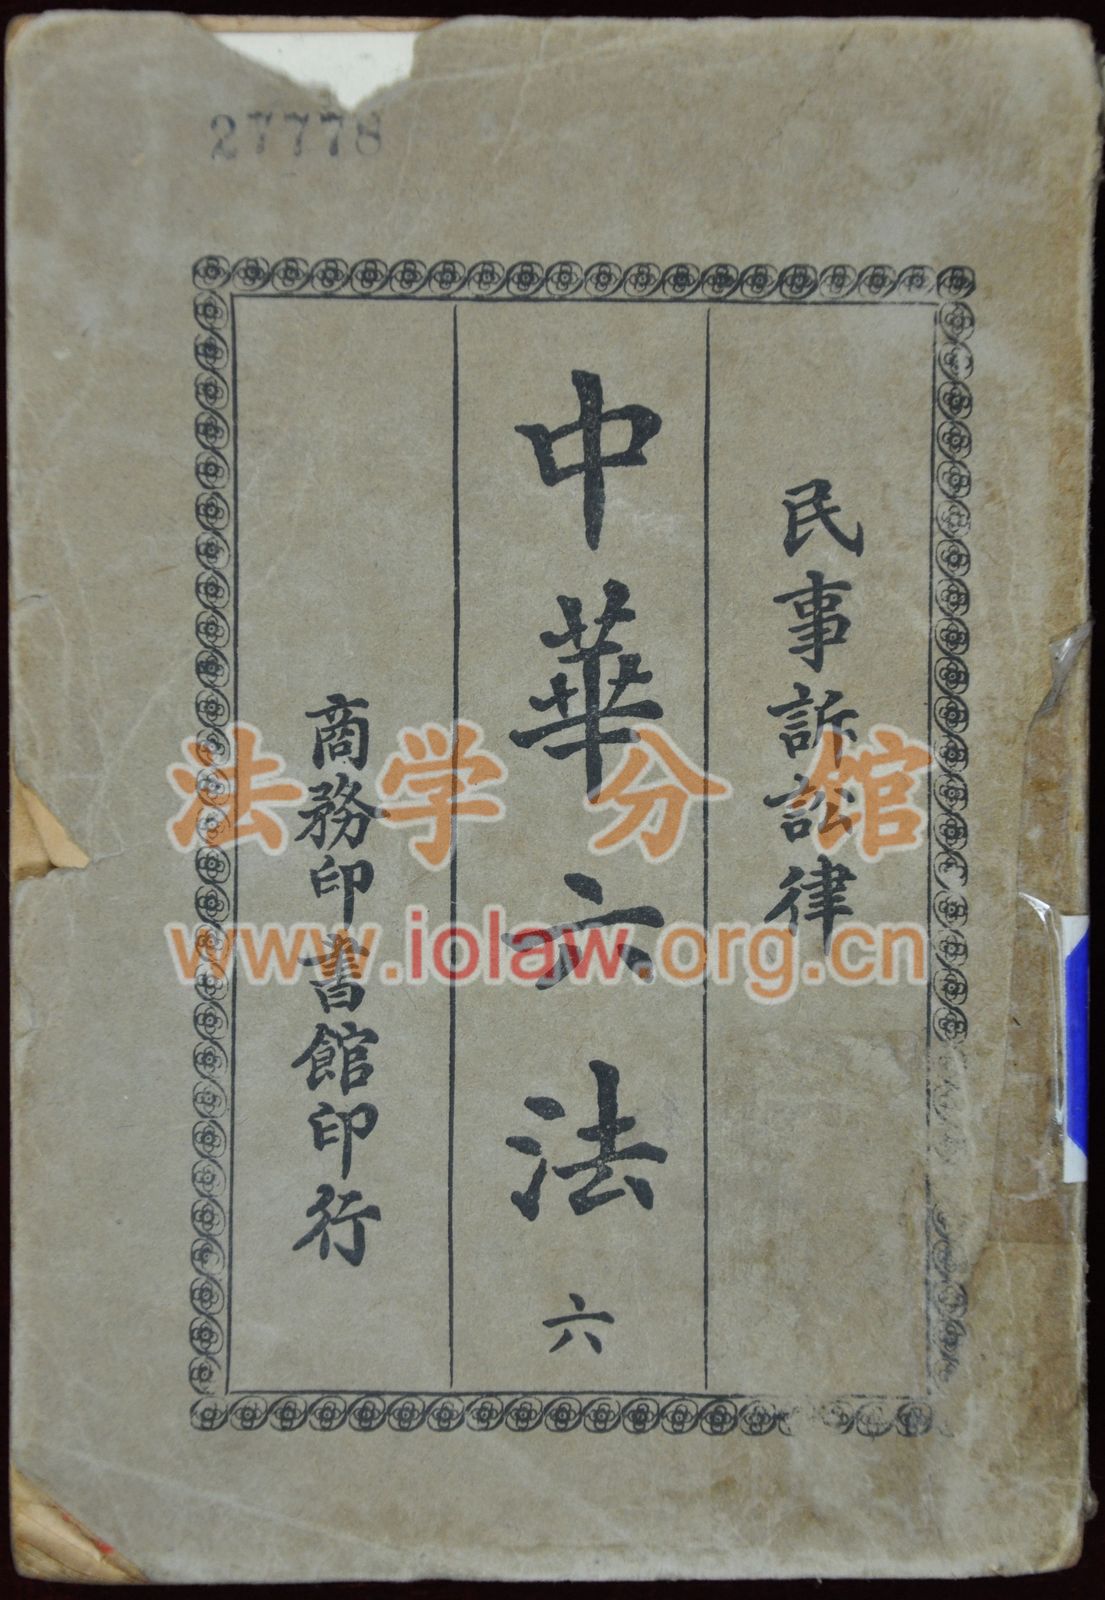 27778
民事訴訟律
中華六法 六
商務印書館印行
法学分館
www.iolaw.org.cn